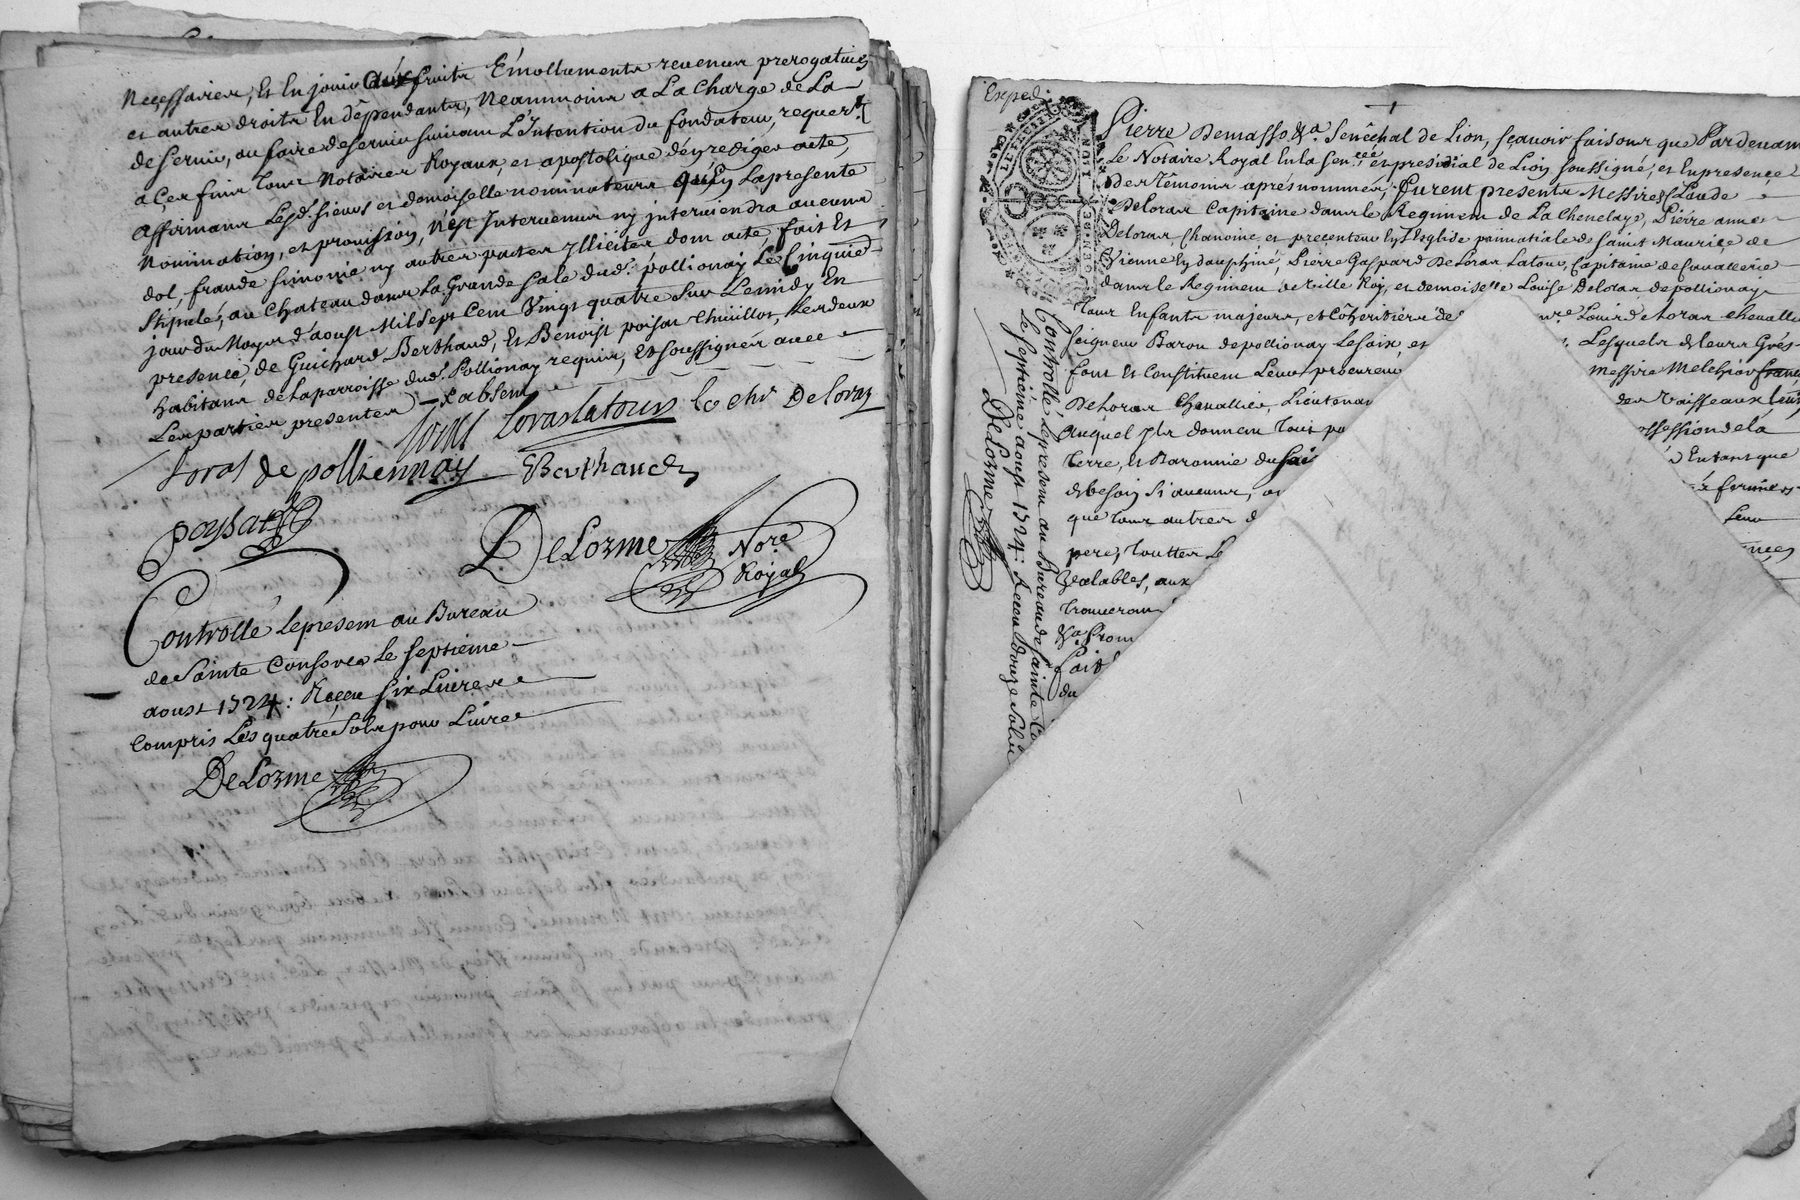 Necessaires, Et En jouir aux fruits Emolluments revenus prerogatives
et autres droits En dépendants, Neammoins a La Charge de La
deservir, ou faire deservir suivant L'Intention du fondateur, requert
a Ces fins tous Notaires Royaux, et apostolique d'en rediger acte,
affirmans Lesd. sieurs et demoiselle nominateurs qu'En La presente
Nomination, et provission, N'est Intervenu ny interviendra aucune
dol, fraude simonie ny autres pactes Illicites dont acte, fait Et
Stipulé, au Chateau dans La Grande Sale dud. pollionay Le Cinquie
jour du Moys d'aoust Mil Sept Cent Vingt quatre Sur Le midy En
presence, de Guichard Berthaud, Et Benoist poisat Les deux
habitans de La parroisse dud. Pollionay requis, Et soussignés avec
Les parties presentes
loras Loraslatour le chr De loras
Loras de pollionnay Berthaud
poysat
DeLorme Nore
Royal
Controllé Le present au Bureau
de Sainte Consorce Le septieme
aoust 1724: Reçeu six Livres
Compris Les quatre Sols pour Livre
DeLorme
Exped.
GENERALITE DE LION
Pierre Demasso &a Senêchal de Lion, sçavoir faisons que Pardevant
Le Notaire Royal En la Sen.cée et presidial de Lion soussigné, et En presence
Des têmoins aprés nommés, furent presents Messires Claude
Deloras Capitaine dans le Regiment de La Chenelaye, Pierre aimé
Deloras, Chanoine et precenteur En L'Esglise primatiale de Sainct Maurice de
Vienne En dauphiné, Pierre Gaspard De Loras Latour, Capitaine de Cavallerie
dans le Regiment de Ville Roy, et demoiselle Louise Deloras de pollionay
Tous Enfants majeurs, et Coheritiers de Louis de Loras chevallier
Seigneur Baron de pollionay Le Saix, et Lesquels de Leurs Grés
font Et Constituent Leur procureur messire Melchior françois
DeLoras Chevallier, Lieutenant des Vaisseaux
Auquel Ils donnent tout po ossession de la
terre, Et Baronnie du Saix Entant que
de besoin si aucune,
que tous autres Leur
pere, touttes Le
Vealables, aux
trouveront
&a Prom
fait
du
Controllé Le present au Bureau de Sainte Co
Le septieme aoust 1724: Receu Douze Sols
DeLorme